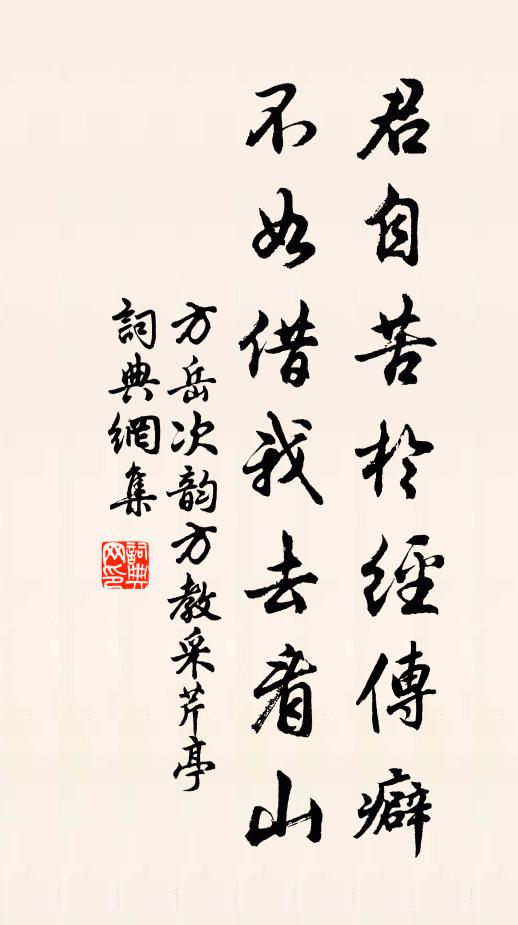 君自苦於經傳癖
不如借我去看山
方岳次韵方教采芹亭
詞典網集
詞典網印